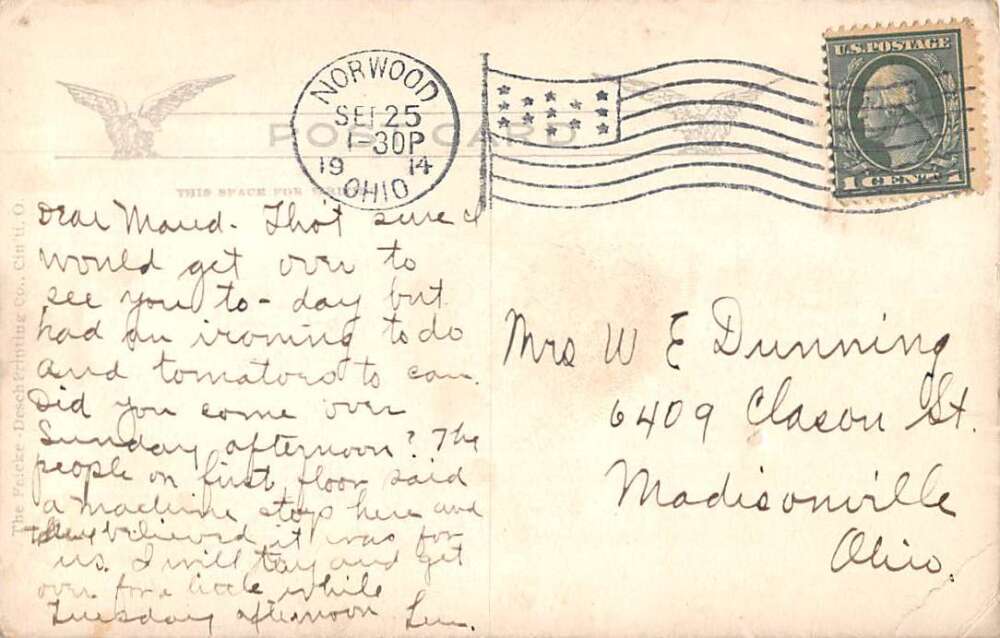 NORWOOD
SEP 25
1-30P
19 14
OHIO
U.S. POSTAGE
1 CENT 1
POST CARD
THIS SPACE FOR
The Feicke-Desch Printing Co., Cin'ti, O.
Dear Maud. Thot sure I
would get over to
see you to-day but
had an ironing to do
and tomatoes to can.
Did you come over
Sunday afternoon? The
people on first floor said
a machine stop here and
they believed it was for
us. I will try and get
over for a little while
Tuesday afternoon
Mrs W E Dunning
6409 Clason St.
Madisonville
Ohio.